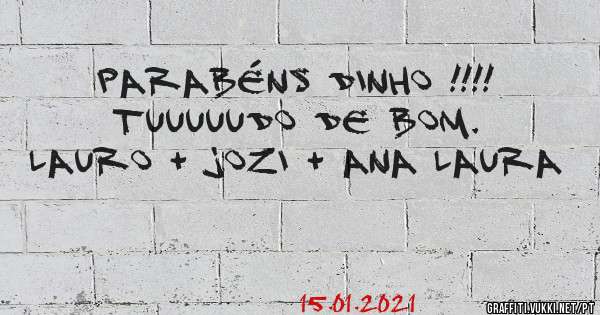 PARABÉNS DINHO !!!!
TUUUUUDO DE BOM.
LAURO + JOZI + ANA LAURA
15.01.2021
GRAFFITI.VUKKI.NET/PT